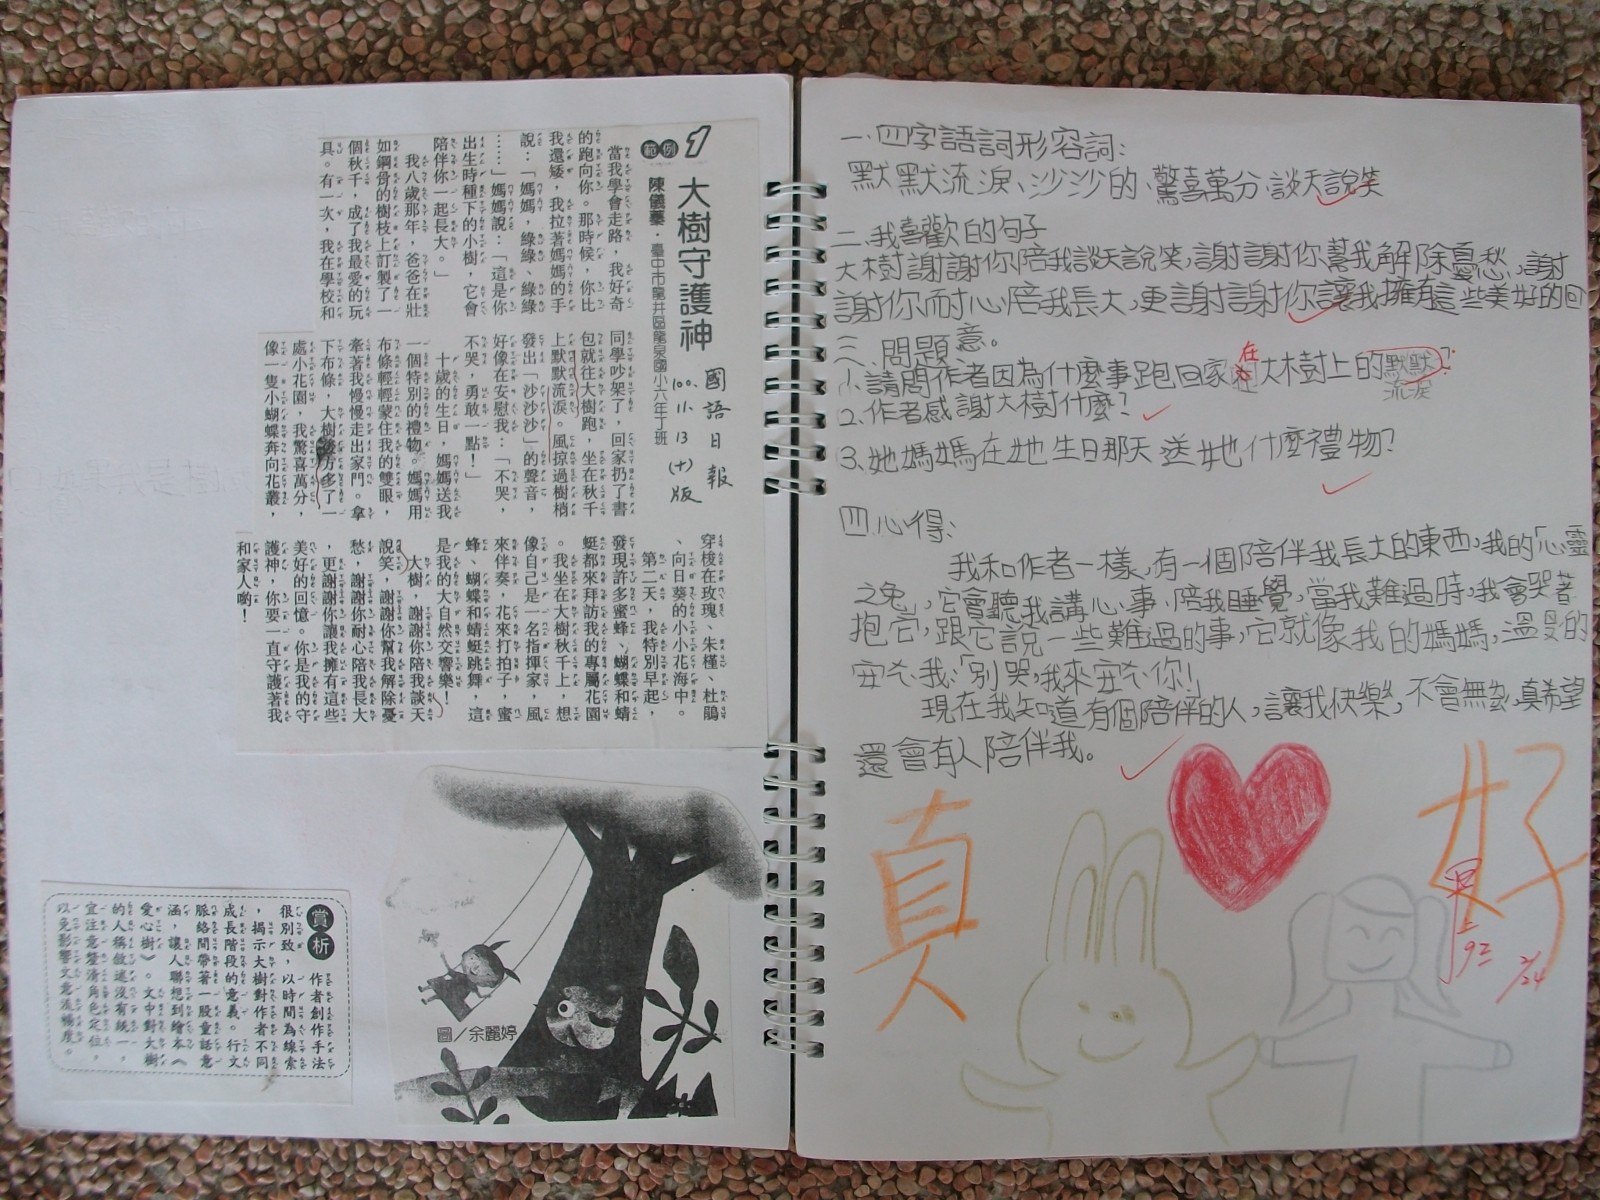 範例1 大樹守護神
陳儀蓁・臺中市龍井區龍泉國小六年丁班
國語日報
100.11.13(十)版
當我學會走路,我好奇
的跑向你。那時候,你比
我還矮,我拉著媽媽的手
說:「媽媽,綠綠、綠綠
……」媽媽說:「這是你
出生時種下的小樹,它會
陪伴你一起長大。」
我八歲那年,爸爸在壯
如鋼骨的樹枝上訂製了一
個秋千,成了我最愛的玩
具。有一次,我在學校和
同學吵架了,回家扔了書
包就往大樹跑,坐在秋千
上默默流淚。風掠過樹梢
發出「沙沙沙」的聲音,
好像在安慰我:「不哭,
不哭,勇敢一點!」
十歲的生日,媽媽送我
一個特別的禮物。媽媽用
布條輕輕蒙住我的雙眼,
牽著我慢慢走出家門。拿
下布條,大樹後方多了一
處小花園,我驚喜萬分,
像一隻小蝴蝶奔向花叢,
穿梭在玫瑰、朱槿、杜鵑
、向日葵的小小花海中。
第二天,我特別早起,
發現許多蜜蜂、蝴蝶和蜻
蜓都來拜訪我的專屬花園
。我坐在大樹秋千上,想
像自己是一名指揮家,風
來伴奏,花來打拍子,蜜
蜂、蝴蝶和蜻蜓跳舞,這
是我的大自然交響樂!
大樹,謝謝你陪我談天
說笑,謝謝你幫我解除憂
愁,謝謝你耐心陪我長大
,更謝謝你讓我擁有這些
美好的回憶。你是我的守
護神,你要一直守護著我
和家人喲!
圖/余麗婷
賞析 作者創作手法
很別致,以時間為線索
,揭示大樹對作者不同
成長階段的意義。行文
脈絡間帶著一股童話意
涵,讓人聯想到繪本《
愛心樹》。文中對大樹
的人稱敘述沒有統一,
宜注意釐清角色定位,
以免影響文意流暢度。
一、四字語詞形容詞:
默默流淚、沙沙的、驚喜萬分、談天說笑
二、我喜歡的句子
大樹謝謝你陪我談天說笑,謝謝你幫我解除憂愁,謝
謝你耐心陪我長大,更謝謝你讓我擁有這些美好的回
意。
三、問題
1、請問作者因為什麼事跑回家在大樹上的默默流淚?
2、作者感謝大樹什麼?
3、她媽媽在她生日那天送她什麼禮物?
四、心得:
我和作者一樣,有一個陪伴我長大的東西,我的「心靈
之兔」,它會聽我講心事,陪我睡覺,當我難過時,我會哭著
抱它,跟它說一些難過的事,它就像我的媽媽,溫ㄋㄩㄢˇ的
安ㄨㄟˋ我:「別哭,我來安ㄨㄟˋ你!」
現在我知道有個陪伴的人,讓我快樂,不會無ㄌㄧㄠˊ,真希望
還會有人陪伴我。
真 好
甲上
93
2/24